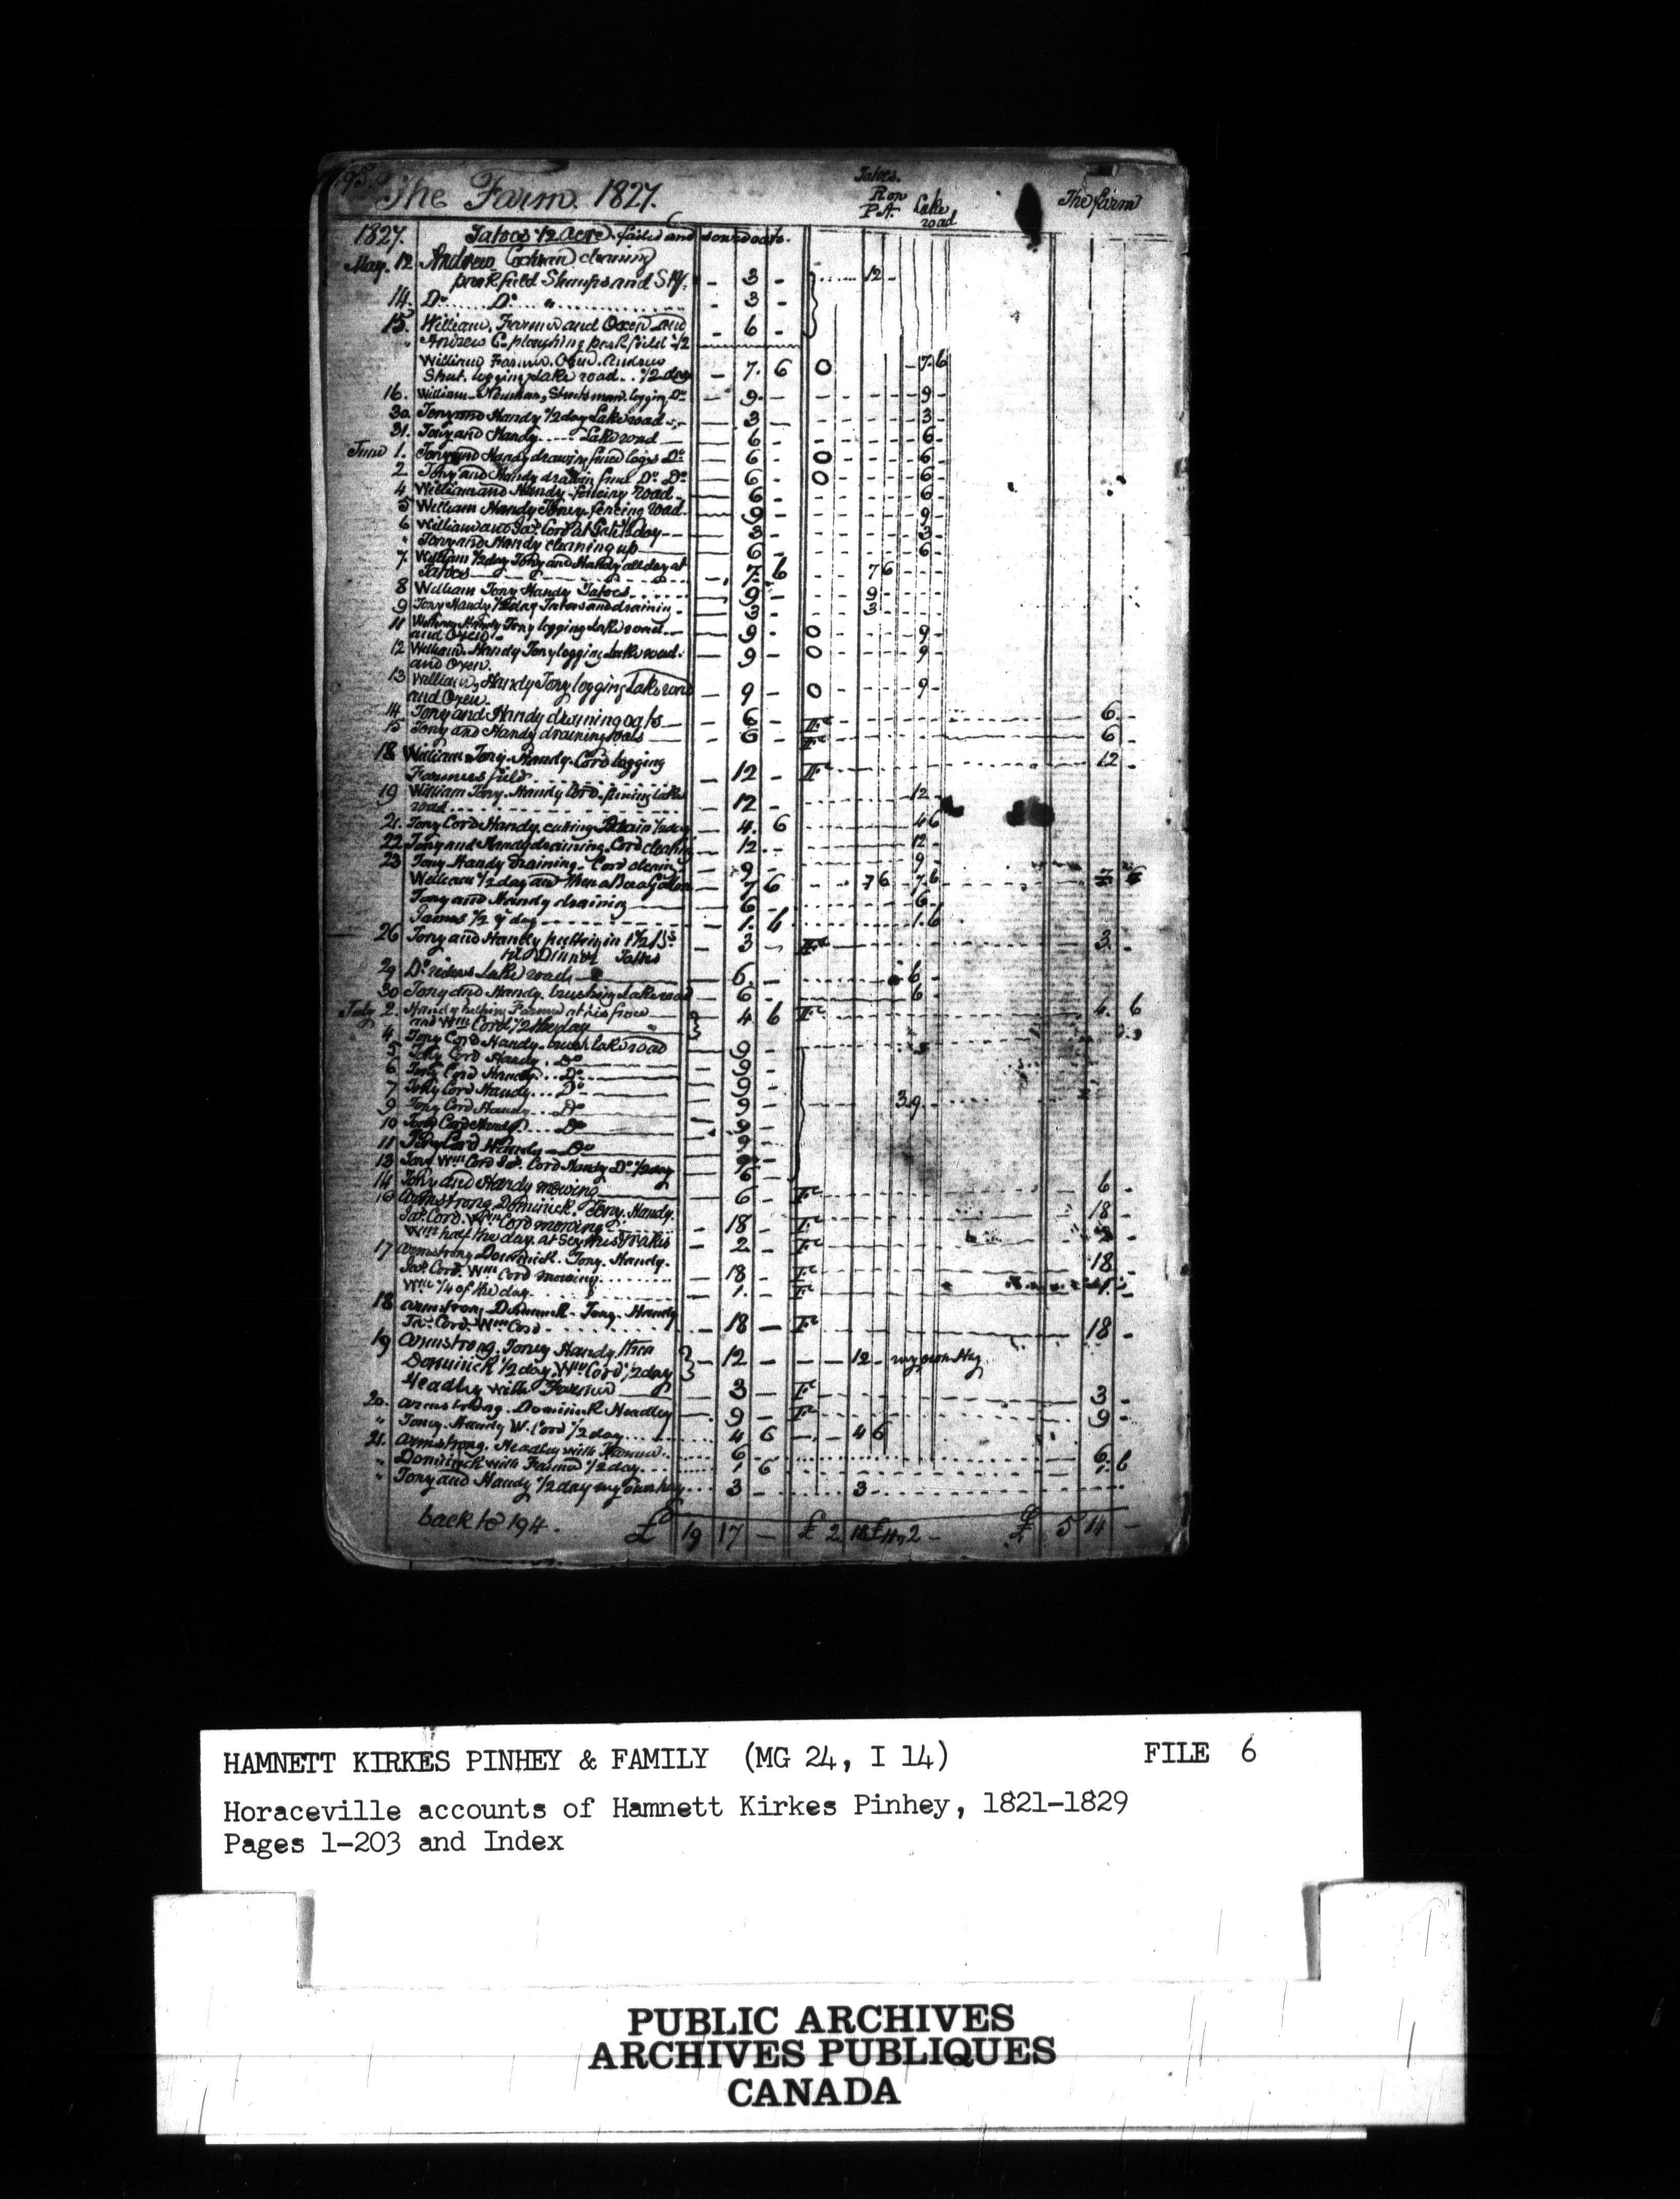 195.
The Farm. 1827.
Tatoes.
Run
P.A.
Lake
road
The farm
1827. Tatoes 1/2 acre failed and sowed oats.
May. 12 Andrew Cochran cleaning
field Stumps and - 3 - 12 -
14. Do Do " - 3 -
15. William, Farmer and Oxen and - 6 -
" Andrew C. ploughing field 1/2
William Farmer. Oxen. Andrew
logging Lake road. 1/2 day - 7. 6 O - 7. 6
16. William logging Do - 9 - 9 -
30 Tony and Handy 1/2 day Lake road - 3 - 3 -
31. Tony and Handy Lake road - 6 - 6 -
June 1. Tony and Handy drawing fence logs Do - 6 - O 6 -
2. Tony and Handy drawing fence Do Do - 6 - O 6 -
4 William and Handy fencing road - 6 - 6 -
5 William Handy Toney fencing road - 9 - 9 -
6 William and Jas. Cord at Gate 1/2 day - 3 - 3 -
" Tony and Handy cleaning up - 6 - 6 -
7. William 1/2 day Tony and Handy all day at
Tatoes - 7. 6 7 6
8 William Tony Handy Tatoes - 9 - 9 -
9 Tony Handy 1/2 day Tatoes and draining - 3 - 3 -
11 William Handy Tony logging Lake road
and Oxen. - 9 - O 9 -
12 William. Handy Tony logging Lake road.
and Oxen. - 9 - O 9 -
13 William, Handy Tony logging Lake road
and Oxen. - 9 - O 9 -
14 Tony and Handy draining oats - 6 - Fr 6 -
15 Tony and Handy draining oats - 6 - Fr 6 -
18 William Tony. Handy. Cord logging
Farmers field - 12 - Fr 12 -
19 William Tony. Handy Cord. fencing lake
road - 12 - 12 -
21. Tony Cord Handy. cutting Drain 1/2 day - 4. 6 4 6
22 Tony and Handy draining. Cord clearing - 12 - 12 -
23 Tony Handy draining. Cord clearing - 9 - 9 -
William 1/2 day and then a Bee - 7 6 7 6 7. 6 7 6
Tony and Handy draining - 6 - 6 -
James 1/2 ye day - 1. 6 1. 6
26 Tony and Handy putting in 1 1/2 Bs
till Dinner Tatoes - 3 - Fr 3 -
29 Do Lake road - 6 - 6 -
30 Tony and Handy. brushing Lake road - 6 - 6 -
July 2. Handy helping Farmer at his
and Wm Cord 1/2 the day 4 6 Fr 4. 6
4 Tony Cord Handy. brush lake road - 9 -
5 Tony Cord Handy. Do - 9 -
6 Tony Cord Handy. Do - 9 -
7 Tony Cord Handy. Do - 9 -
9 Tony Cord Handy. Do - 9 - 3. 9
10 Tony Cord Handy. Do - 9 -
11 Tony Cord Handy. Do - 9 -
13 Tony Wm Cord Jas. Cord Handy Do 1/2 day
14 Tony and Handy mowing - 6 - Fr 6 -
16 Armstrong Dominick. Tony. Handy.
Jas. Cord. Wm Cord mowing - 18 - Fr 18 -
Wm half the day. at Scythes & Rakes - 2 - Fr 2 -
17 Armstrong Dominick. Tony. Handy.
Jas. Cord. Wm Cord mowing - 18 - Fr 18 -
Wm 1/4 of the day - 1. - Fr 1. -
18 Armstrong Dominick. Tony. Handy
Jas. Cord. Wm Cord - 18 - Fr 18 -
19 Armstrong. Toney Handy
Dominick 1/2 day. Wm Cord 1/2 day - 12 - 12 - my own Hay
Headley with Farmer - 3 - Fr 3 -
20. Armstrong. Dominick Headley - 9 - Fr 9 -
" Toney. Handy W. Cord 1/2 day 4 6 4 6
21. Armstrong. Headley with Farmer 6 - 6. -
" Dominick with Farmer 1/2 day 1 6 1. 6
" Tony and Handy 1/2 day my own hay 3 - 3 -
back to 194. £ 19 17 - £ 2 18 £ 11 " 2 - £ 5 14 -
HAMNETT KIRKES PINHEY & FAMILY (MG 24, I 14) FILE 6
Horaceville accounts of Hamnett Kirkes Pinhey, 1821-1829
Pages 1-203 and Index
PUBLIC ARCHIVES
ARCHIVES PUBLIQUES
CANADA